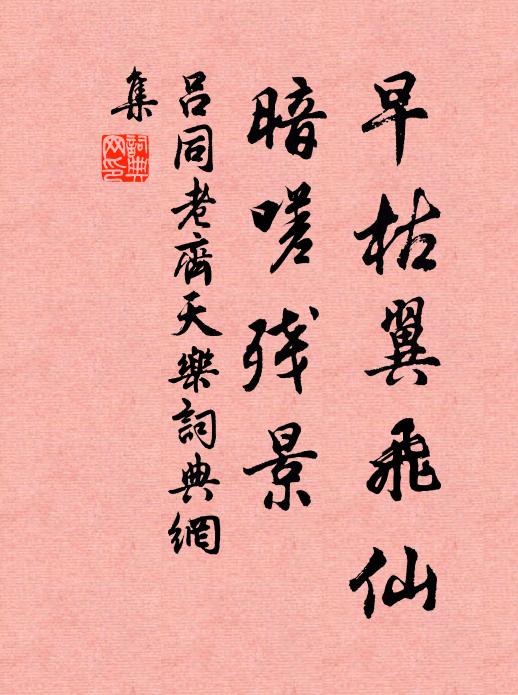 早枯翼飛仙
暗嗟残景
呂同老齊天樂詞典網
集
詞典
网印